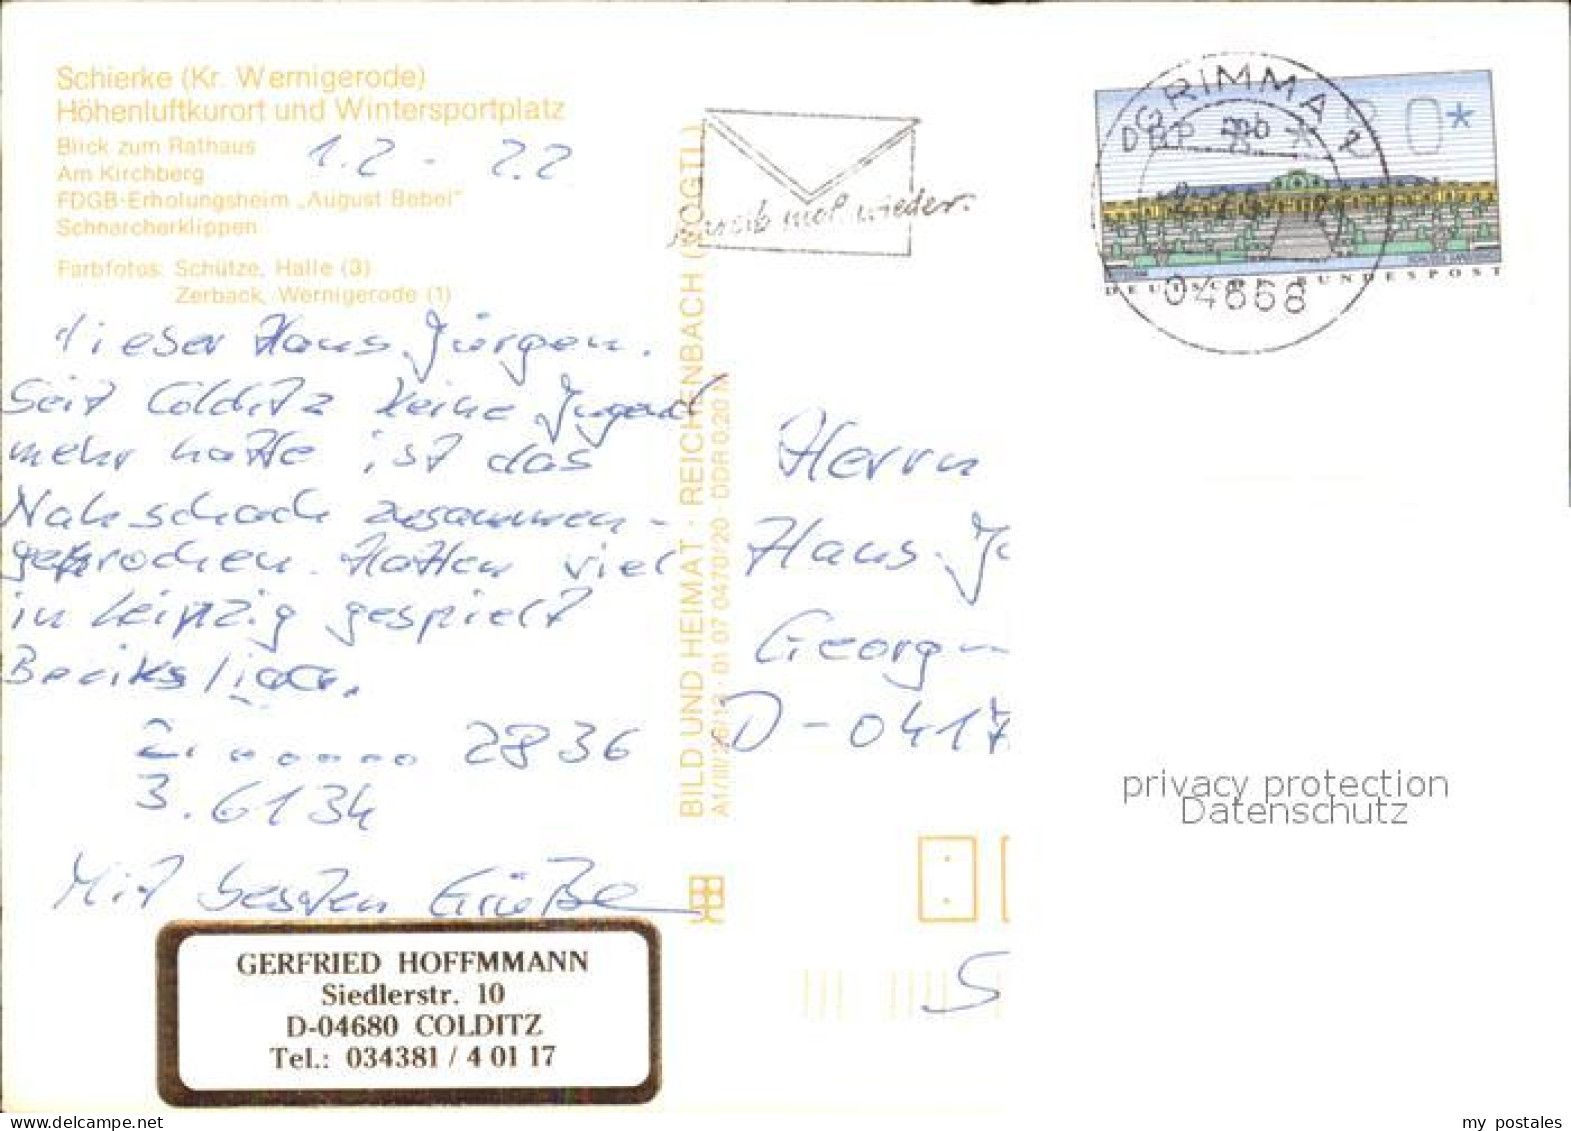 Schierke (Kr. Wernigerode)
Höhenluftkurort und Wintersportplatz
Blick zum Rathaus
Am Kirchberg
FDGB-Erholungsheim „August Bebel"
Schnarcherklippen
Farbfotos: Schütze, Halle (3)
Zerback, Wernigerode (1)
1.2 - 2.2
Lieber Hans-Jürgen.
Seit Colditz keine Jugend
mehr hatte, ist das
Nahschach zusammen-
gebrochen. Hatten viel
in Leipzig gespielt
Bezirksliga.
2. 2836
3. 6134
Mit besten Grüße
GERFRIED HOFFMMANN
Siedlerstr. 10
D-04680 COLDITZ
Tel.: 034381 / 4 01 17
BILD UND HEIMAT · REICHENBACH (VOGTL)
A1/III/26/13 · 01 07 0470/20 · DDR 0,20 M
schreib mal wieder.
GRIMMA 1
04668
DBP
80*
DEUTSCHE BUNDESPOST
Herrn
Hans-J
Georg-
D-0417
S
privacy protection
Datenschutz
my_postales